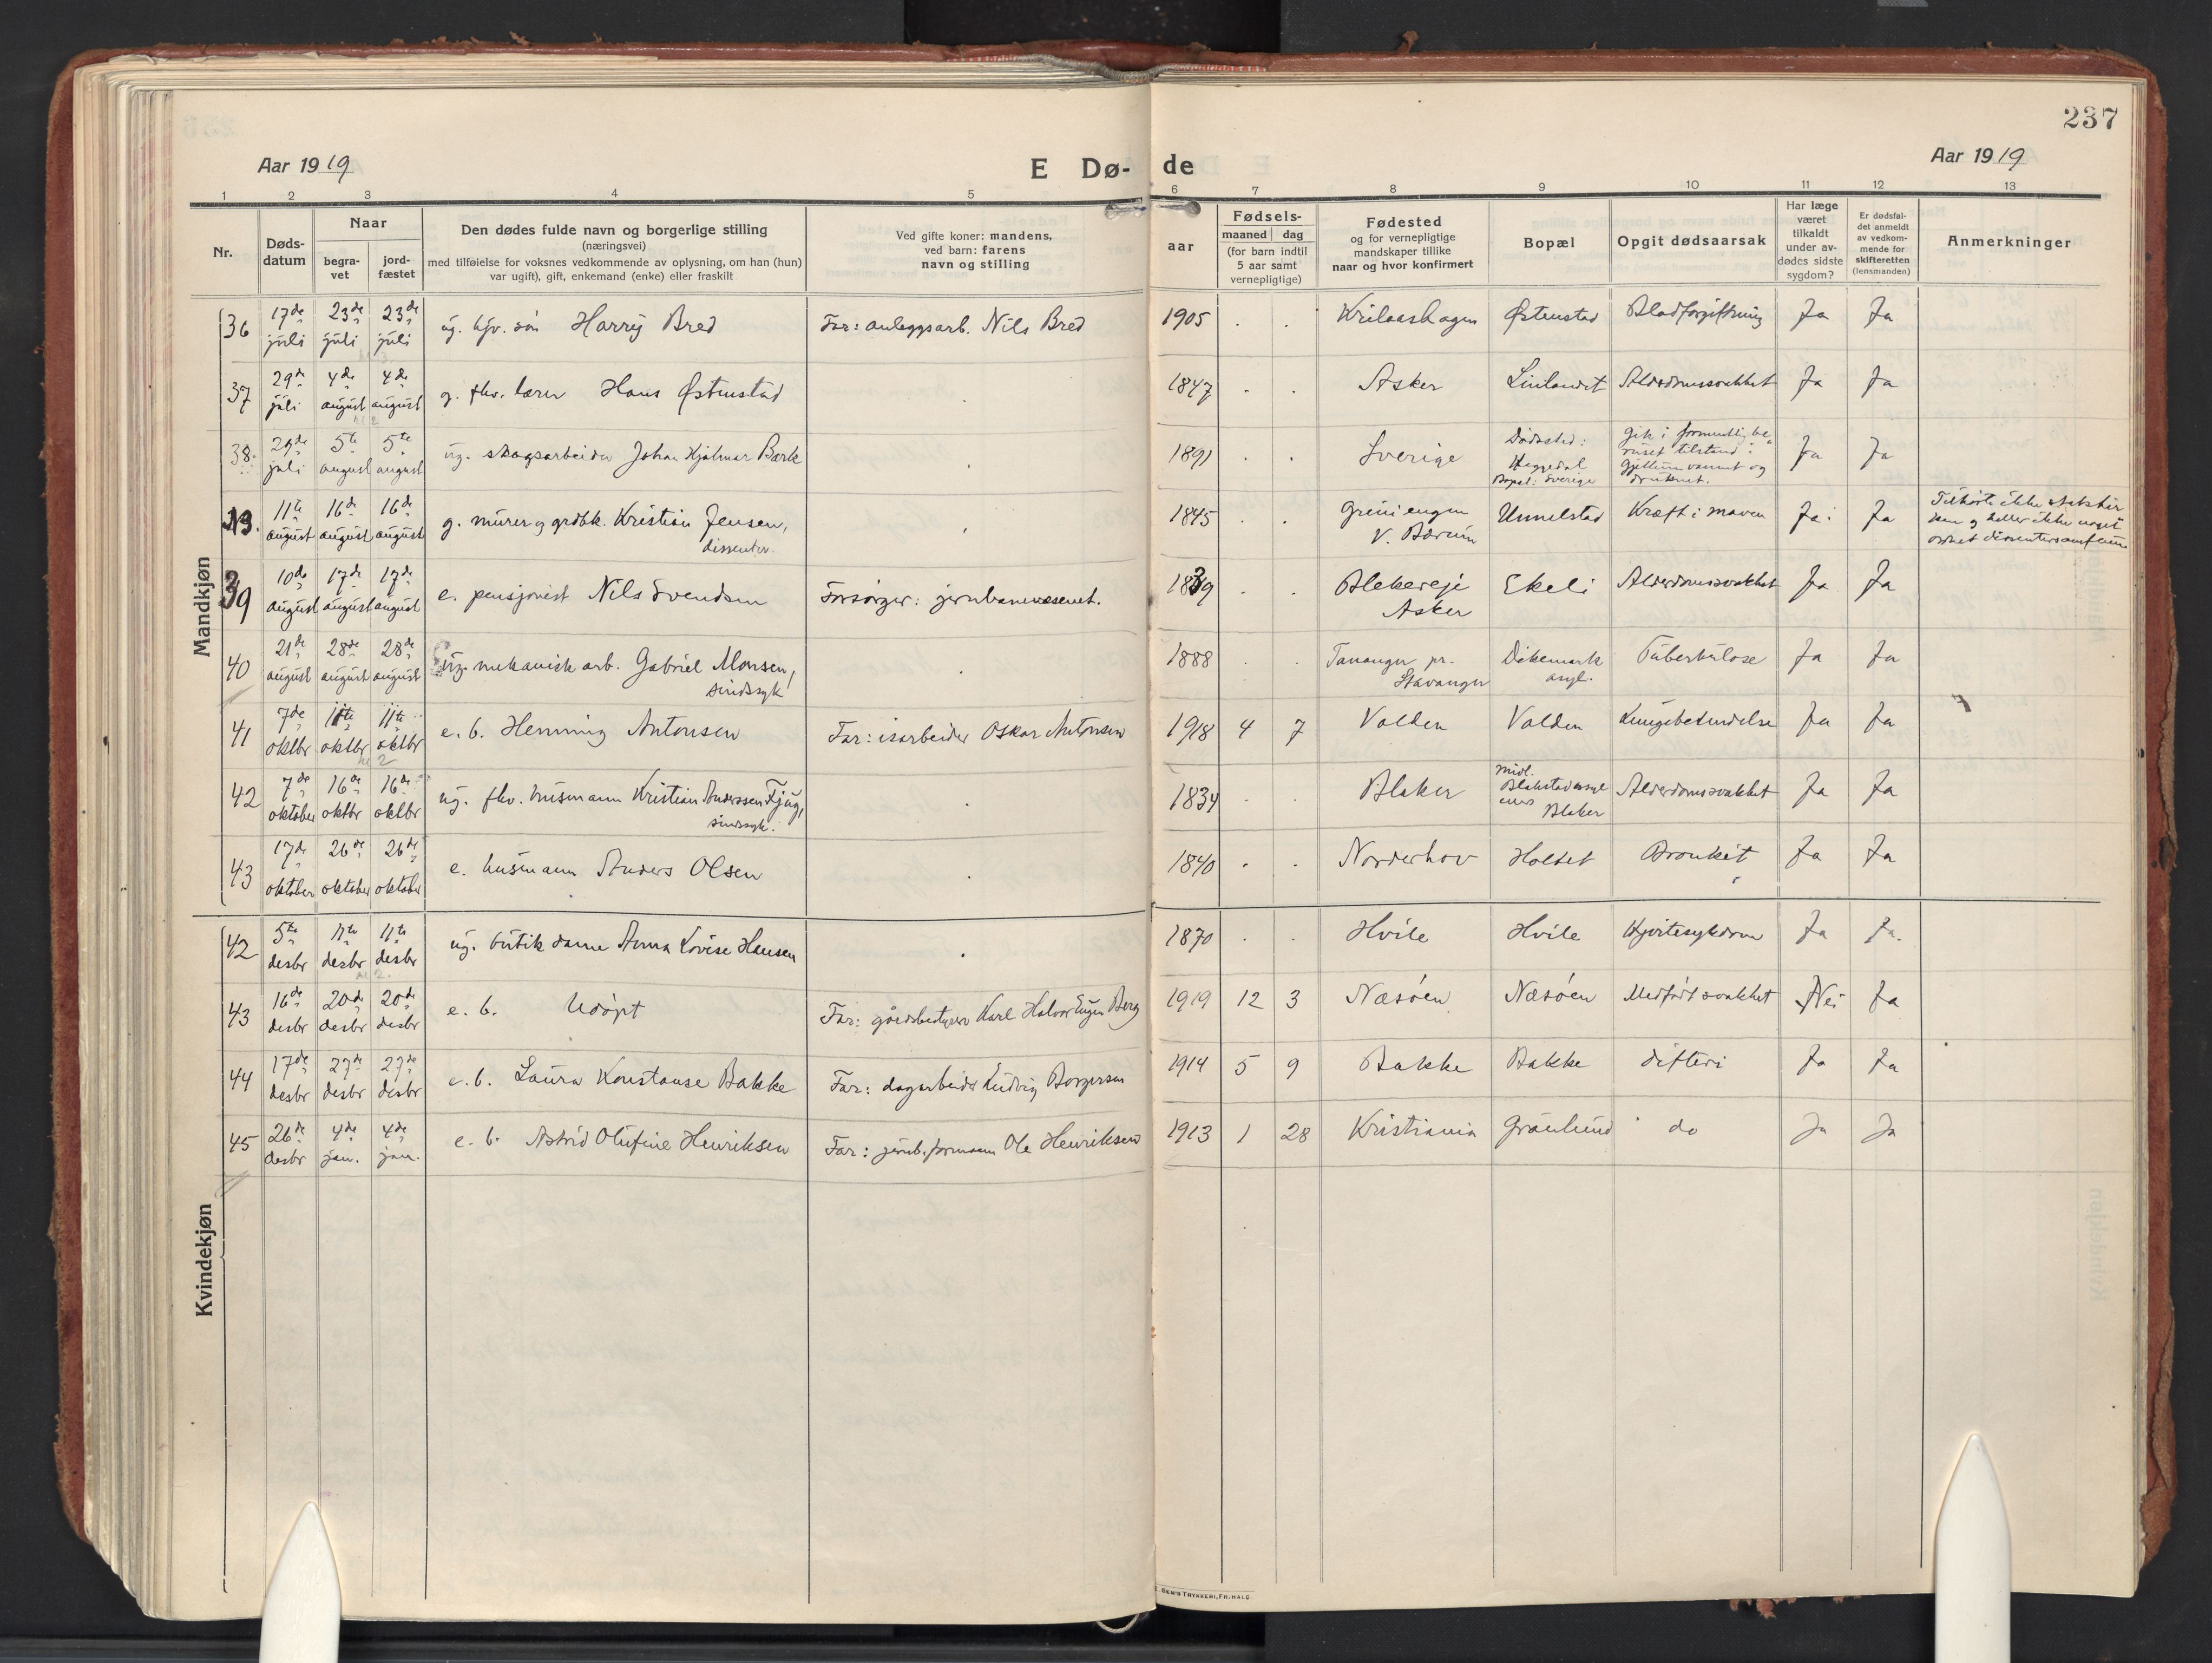 237
Aar 1919
E Dø-de
Aar 1919
1 2 3 4 5 6 7 8 9 10 11 12 13
Nr.
Døds-
datum
Naar
begra-
vet
jord-
fæstet
Den dødes fulde navn og borgerlige stilling
(næringsvei)
med tilføielse for voksnes vedkommende av oplysning, om han (hun)
var ugift), gift, enkemand (enke) eller fraskilt
Ved gifte koner: mandens,
ved barn: farens
navn og stilling
aar
Fødsels-
maaned dag
(for barn indtil
5 aar samt
vernepligtige)
Fødested
og for vernepligtige
mandskaper tillike
naar og hvor konfirmert
Bopæl
Opgit dødsaarsak
Har læge
været
tilkaldt
under av-
dødes sidste
sygdom?
Er dødsfal-
det anmeldt
av vedkom-
mende for
skifteretten
(lensmanden)
Anmerkninger
Mandkjøn
36 17de juli 23de juli 23de juli ug. hjv. søn Harry Bred Far: anleggsarb. Nils Bred 1905 Østenstad Blodforgiftning Ja Ja
37 29de juli 4de august 4de august g. fhv. lærer Hans Østenstad 1847 Asker Alderdomssvakhet Ja Ja
38 29de juli 5te august 5te august ug. skogsarbeider Johan Hjalmar 1891 Sverige Dødssted: Heggedal Bopel: Sverige gik i formentlig be-
ruset tilstand i
Gjellumvannet og
druknet. Ja Ja
N3. 11te august 16de august 16de august g. murer og grdbk. Kristian Jensen,
dissenter. 1845 Grini engen
V. Bærum Unnelstad Kræft i maven Ja Ja Tilhørte ikke statskir-
ken og heller ikke noget
ordnet dissentersamfund
39 10de august 17de august 17de august e. pensjonist Nils Svendsen Forsørger: jernbanevæsenet. 1839 Blekereje
Asker Ekeli Alderdomssvakhet Ja Ja
40 21de august 28de august 28de august ug. mekanisk arb. Gabriel Monsen,
sindssyk 1888 Tananger pr.
Stavanger Dikemark
asyl. Tuberkulose Ja Ja
41 7de oktbr 11te oktbr 11te oktbr e. b. Henning Antonsen Far: isarbeider Oskar Antonsen 1918 4 7 Valden Valden Lungebetendelse Ja Ja
42 7de oktober 16de oktbr 16de oktbr ug. fhv. husmann Kristian Anderssen Fjug,
sindssyk. 1834 Blaker midl.
Blakstad asyl
ellers
Blaker Alderdomssvakhet Ja Ja
43 17de oktober 26de oktober 26de oktober e. husmann Anders Olsen 1840 Norderhov Holtet Bronkit Ja Ja
Kvindekjøn
42 5te desbr 11te desbr 11te desbr ug. butikdame Anna Lovise Hansen 1870 Hvile Hvile Hjertesykdom Ja Ja.
43 16de desbr 20de desbr 20de desbr e. b. Udøpt Far: gårdsbestyrer Karl Halvor Eugen Berg 1919 12 3 Næsøen Næsøen Medfødt svakhet Nei Ja
44 17de desbr 27de desbr 27de desbr e. b. Laura Konstanse Bakke Far: dagarbeider Ludvig Borgersen 1914 5 9 Bakke Bakke difteri Ja Ja
45 26de desbr 4de jan. 4de jan. e. b. Astrid Olufine Henriksen Far: jernb. formann Ole Henriksen 1913 1 28 Kristiania Grønlund do Ja Ja